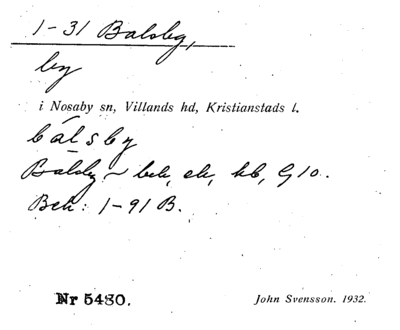 1-31 Balsby,
by
i Nosaby sn, Villands hd, Kristianstads l.
bálsby
Balsby ~ beb, ek, kb, G10.
Beb: 1-91 B.
Nr 5480. John Svensson. 1932.